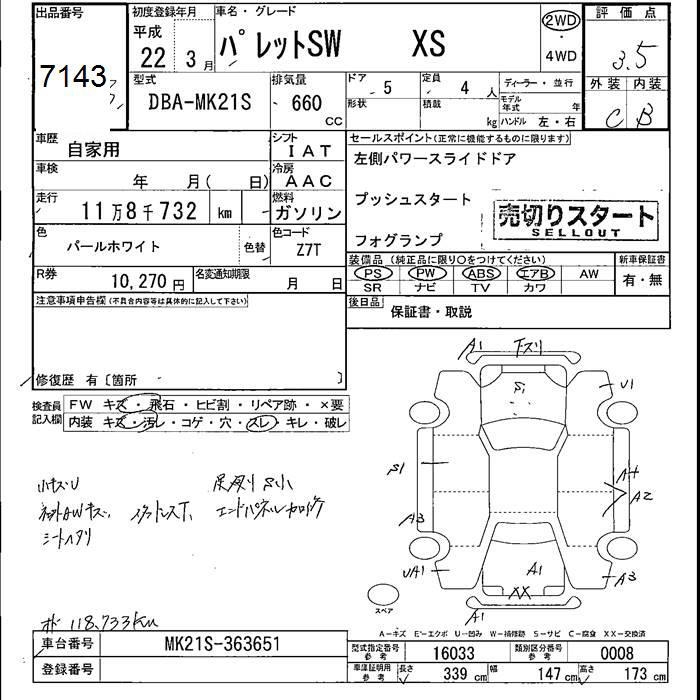 出品番号 初度登録年月 車名・グレード 評価点
7143
平成 22 年 3 月
パレットSW XS
2WD ・ 4WD
3.5
外装 内装
C B
型式 DBA-MK21S
排気量 660 CC
ドア 5 定員 4 人
形状 積載 kg
ディーラー・並行
モデル年式 年
ハンドル 左・右
車歴 自家用
シフト I A T
車検 年 月( 日)
冷房 A A C
走行 11万8千732 km
燃料 ガソリン
色 パールホワイト 色替
色コード Z7T
R券 10,270 円
名変通知期限 月 日
セールスポイント(正常に機能するものに限ります)
左側パワースライドドア
プッシュスタート
フォグランプ
売切りスタート
SELLOUT
装備品 (純正品に限り○をつけてください) 新車保証書
PS PW ABS エアB AW 有・無
SR ナビ TV カワ
後日品 保証書・取説
注意事項申告欄(不具合内容等は具体的に記入して下さい)
修復歴 有〔箇所 〕
検査員記入欄
FW キズ・飛石・ヒビ割・リペア跡・×要
内装 キズ・汚レ・コゲ・穴・スレ・キレ・破レ
小キズU
シートヘタリ
118,733km
A1 下スリ
S1
U1
S1
A4
A2
A3
UA1
A1
A3
XX
A1
スペア
A-キズ E-エクボ U-凹み W-補修跡 S-サビ C-腐食 XX-交換済
車台番号 MK21S-363651
登録番号
型式指定番号 参考 16033 類別区分番号 参考 0008
車庫証明用 参考 長さ 339 cm 幅 147 cm 高さ 173 cm